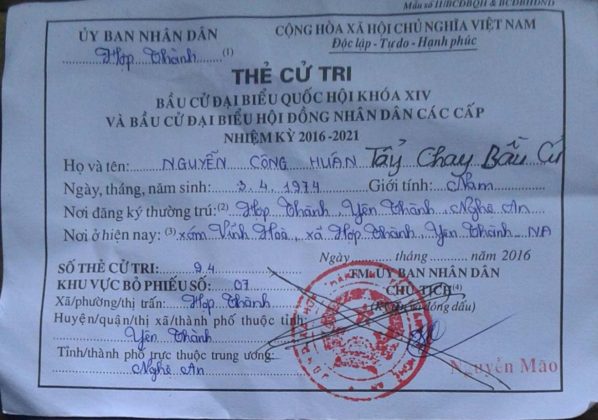 Mẫu số 11/BCĐBQH & BCĐBHĐND
ỦY BAN NHÂN DÂN
Hợp Thành (1)
CỘNG HÒA XÃ HỘI CHỦ NGHĨA VIỆT NAM
Độc lập - Tự do - Hạnh phúc
THẺ CỬ TRI
BẦU CỬ ĐẠI BIỂU QUỐC HỘI KHÓA XIV
VÀ BẦU CỬ ĐẠI BIỂU HỘI ĐỒNG NHÂN DÂN CÁC CẤP
NHIỆM KỲ 2016-2021
Họ và tên: NGUYỄN CÔNG HUÂN Tẩy Chay Bầu Cử
Ngày, tháng, năm sinh: 3.4.1974 Giới tính: Nam
Nơi đăng ký thường trú: (2) Hợp Thành, Yên Thành, Nghệ An
Nơi ở hiện nay: (3) xóm Vĩnh Hoà, xã Hợp Thành, Yên Thành NA
Ngày tháng 2016
SỐ THẺ CỬ TRI: 94
KHU VỰC BỎ PHIẾU SỐ: 07
Xã/phường/thị trấn: Hợp Thành
Huyện/quận/thị xã/thành phố thuộc tỉnh:
Yên Thành
Tỉnh/thành phố trực thuộc trung ương:
Nghệ An
TM. ỦY BAN NHÂN DÂN
CHỦ TỊCH (4)
(Ký tên và đóng dấu)
Nguyễn Mão